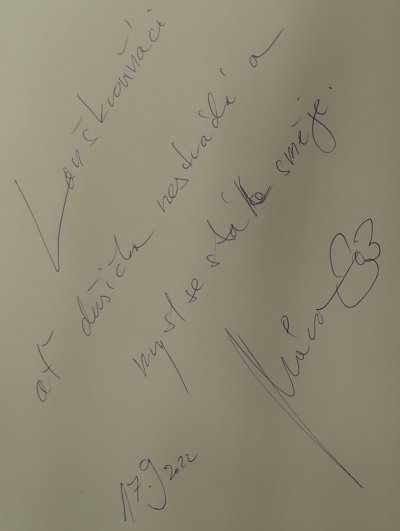 Lanškrouňáci
ať dušička nestrádá a
mysl se stále směje.
17.9 2022